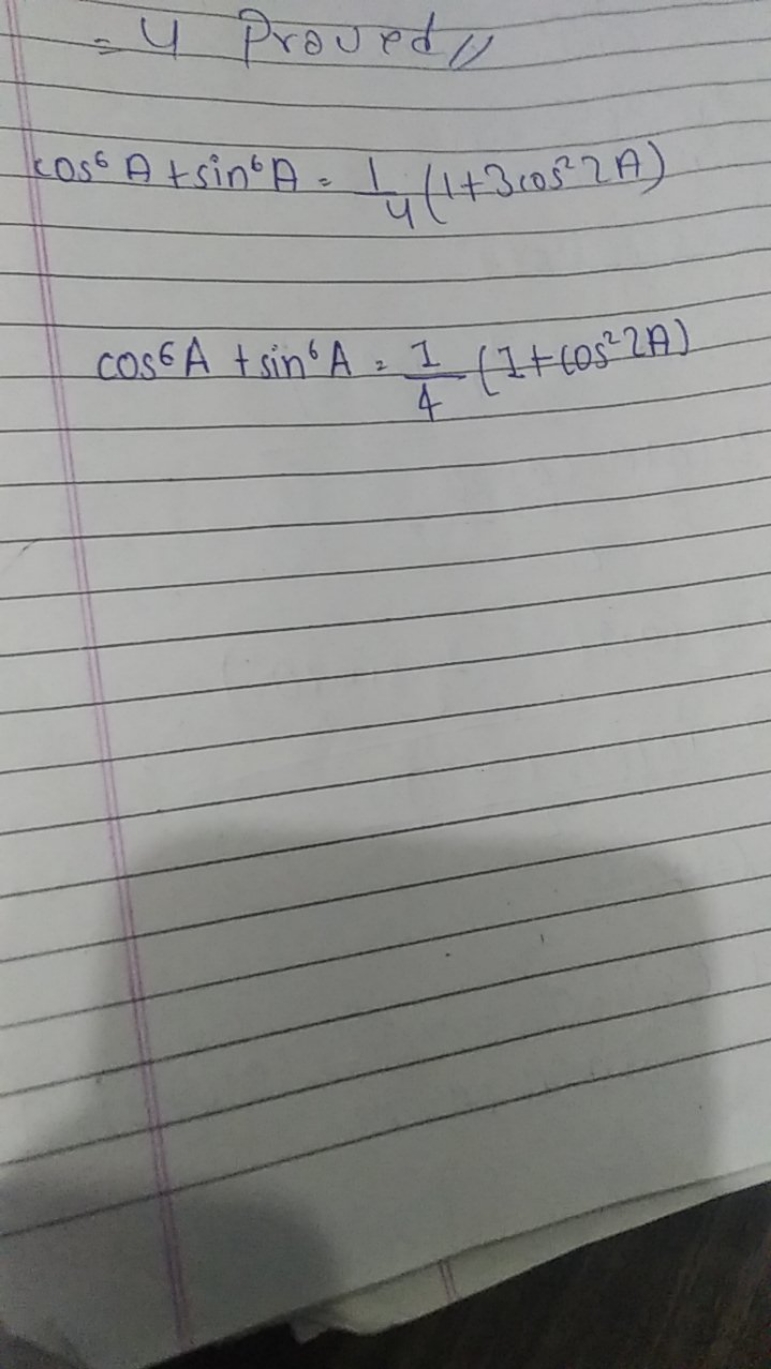 = 4 Proved //
cos⁶ A + sin⁶ A = 1/4 (1+3cos² 2A)
cos⁶ A + sin⁶ A = 1/4 (1+cos² 2A)